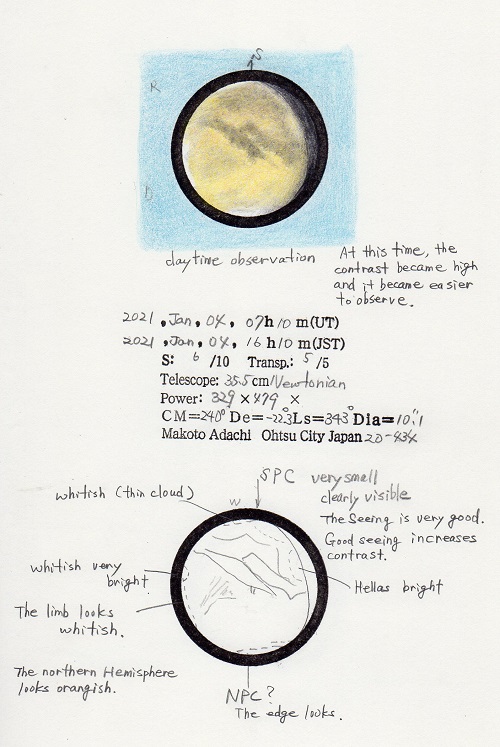 S
R
D
daytime observation
At this time, the
contrast became high
and it became easier
to observe.
2021, Jan, 04, 07h10m(UT)
2021, Jan, 04, 16h10m(JST)
S: 6 /10 Transp.: 5 /5
Telescope: 35.5cm/Newtonian
Power: 329 ×479 ×
CM=240° De=-22.3° Ls=343° Dia=10".1
Makoto Adachi Ohtsu City Japan 20-434
SPC very small
clearly visible
whitish (thin cloud)
W
The Seeing is very good.
Good seeing increases
contrast.
whitish very
bright
Hellas bright
The limb looks
whitish.
The northern Hemisphere
looks orangish.
NPC?
The edge looks.